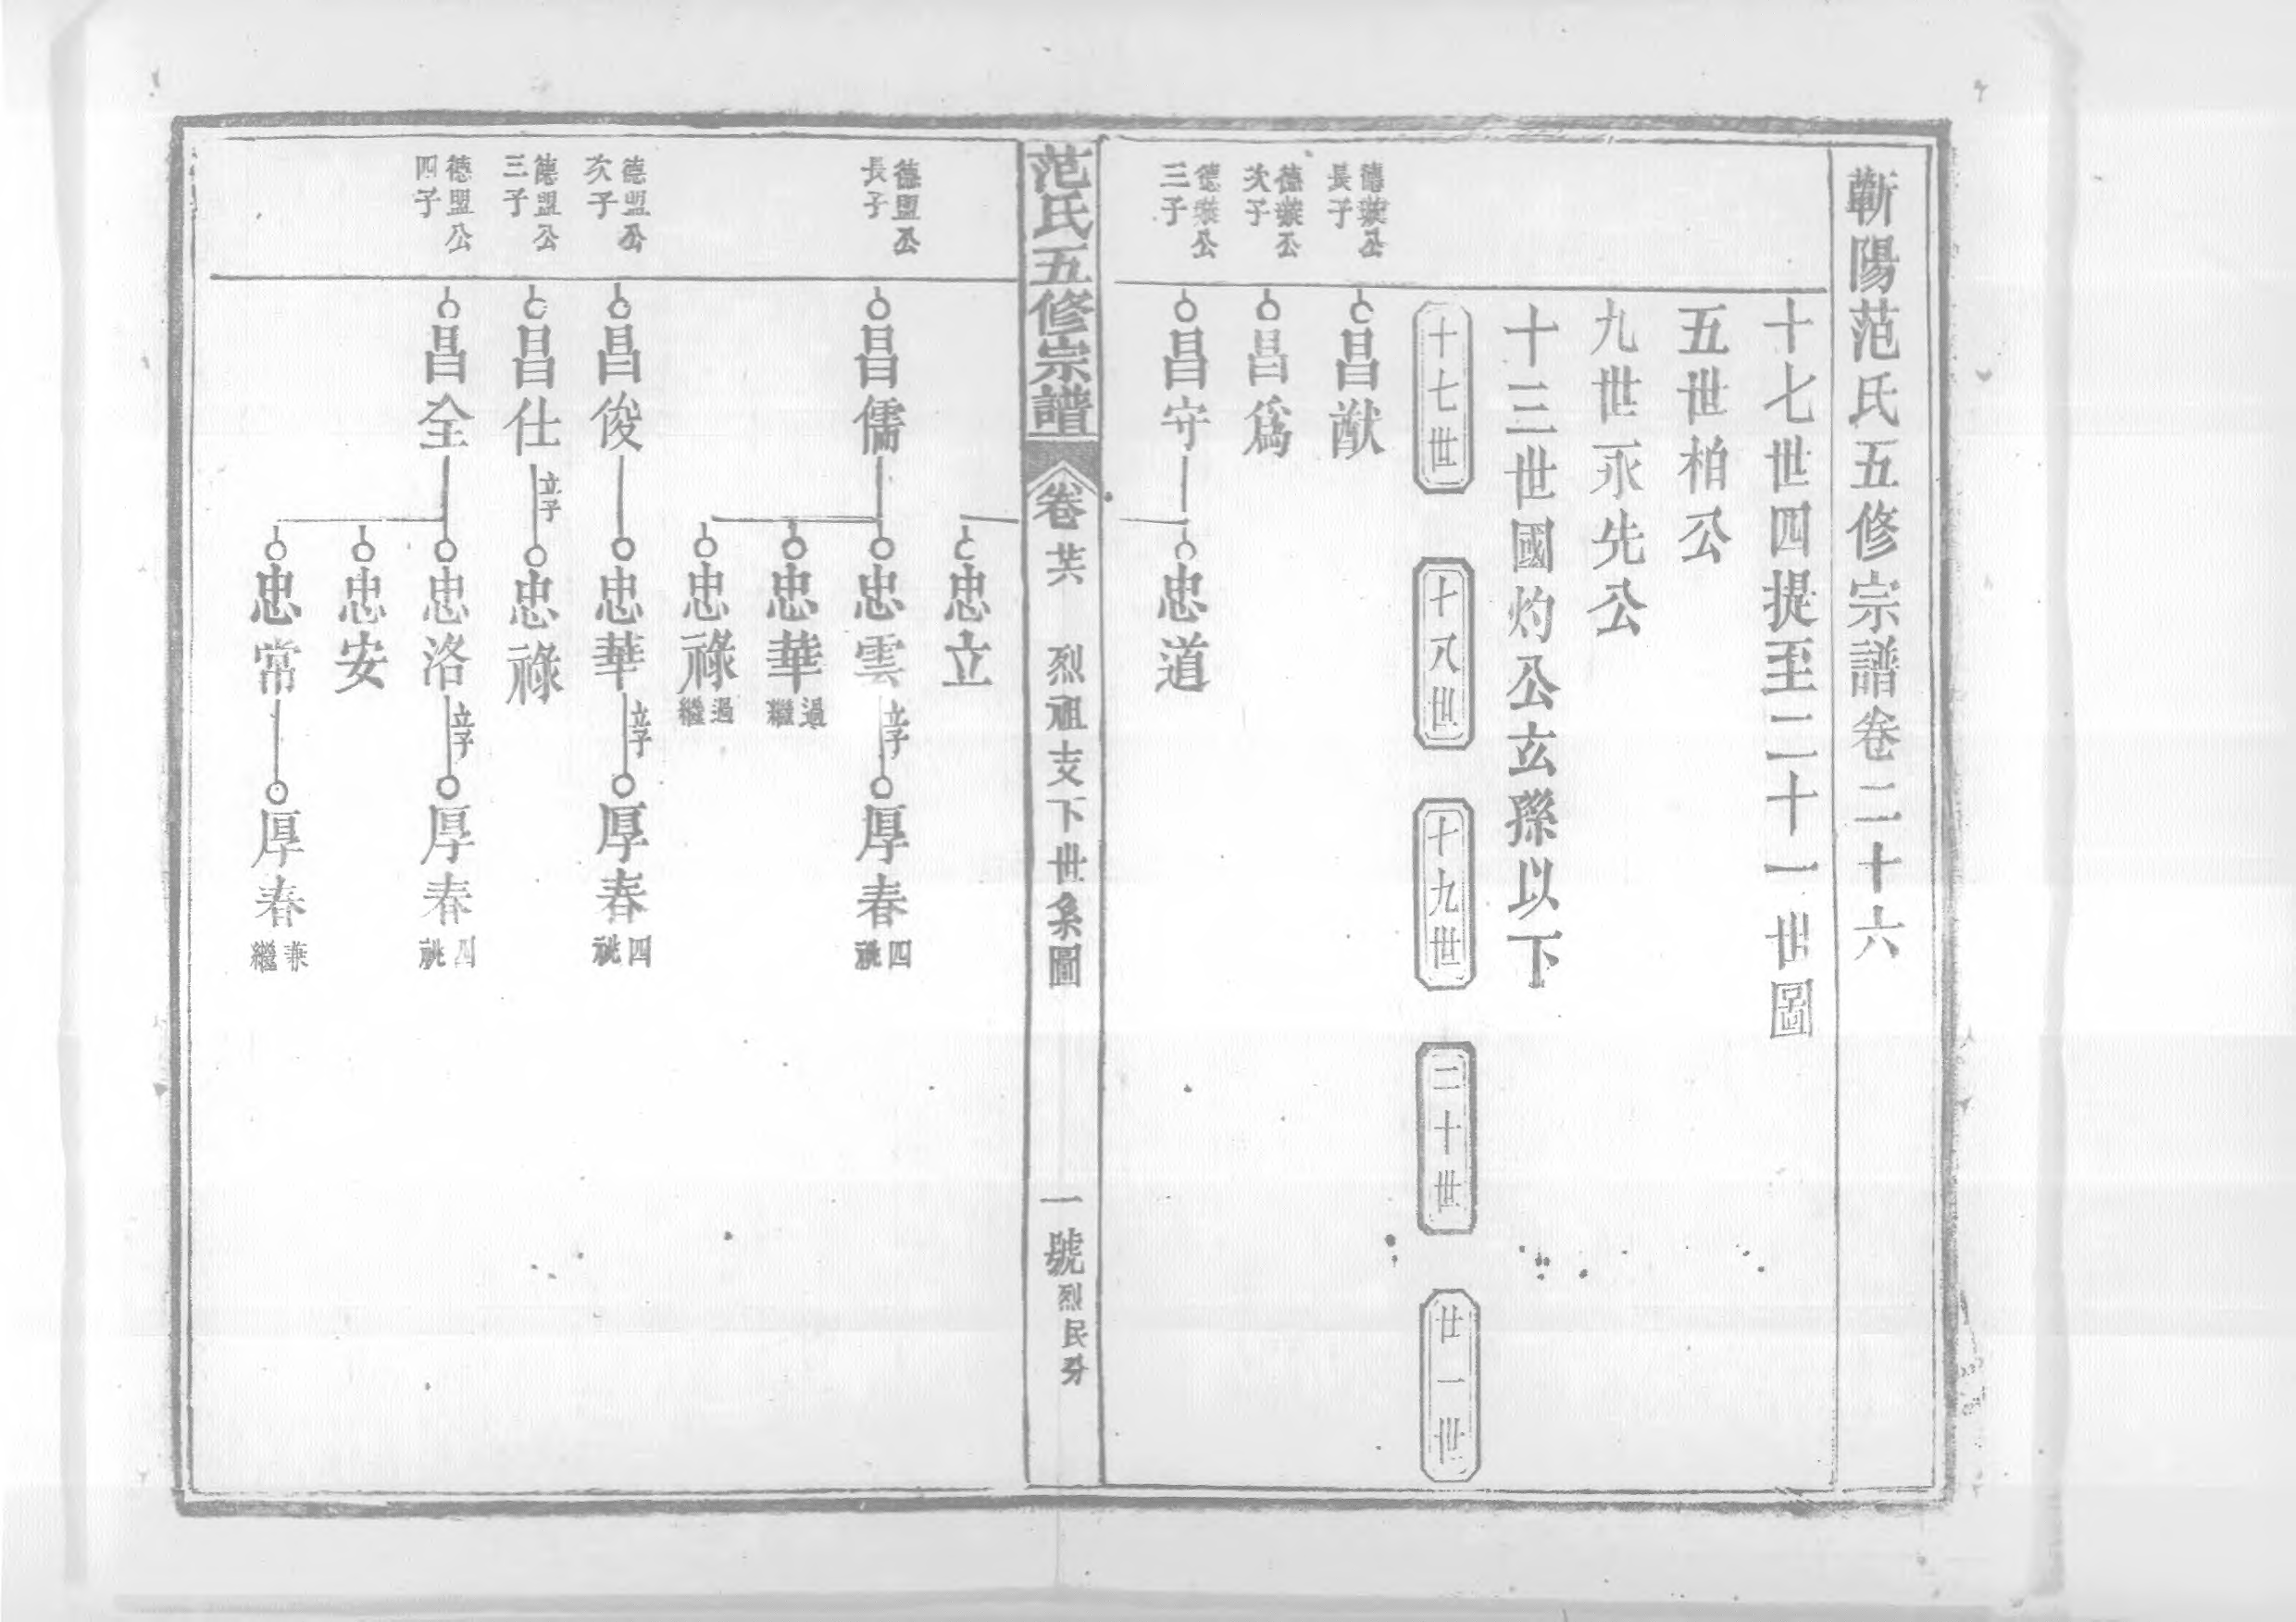 蘄陽范氏五修宗譜卷二十六
十七世四提至二十一世圖
五世柏公
九世永先公
十三世國灼公玄孫以下
十七世
十八世
十九世
二十世
廿一世
德璇公
長子
昌猷
德璇公
次子
昌爲
德璇公
三子
昌守
忠道
范氏五修宗譜
卷共
烈祖支下世系圖
一號
烈民分
忠立
德盟公
長子
昌儒
忠雲
立子
厚春
四
祧
忠華
過
繼
忠祿
過
繼
德盟公
次子
昌俊
忠華
立子
厚春
四
祧
德盟公
三子
昌仕
立子
忠祿
德盟公
四子
昌全
忠洛
立子
厚春
四
祧
忠安
忠常
厚春
兼
繼